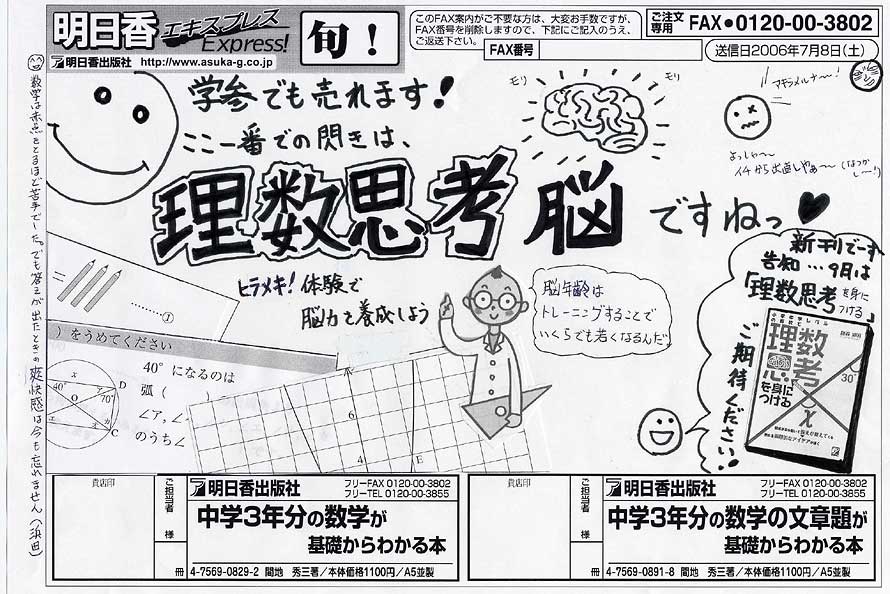 明日香
エキスプレス
Express!
明日香出版社 http://www.asuka-g.co.jp
旬!
このFAX案内がご不要な方は、大変お手数ですが、
FAX番号を削除しますので、下記にご記入のうえ、
ご返送下さい。
FAX番号
ご注文
専用
FAX●0120-00-3802
送信日2006年7月8日(土)
学参でも売れます!
ここ一番での閃きは、
モリ
モリ
アキラメルナ〜!
よっしゃ〜
イチから出直しやぁ〜
理数思考脳ですねっ♥
ヒラメキ!体験で
脳力を養成しよう
脳年齢は
トレーニングすることで
いくらでも若くなるんだ。
新刊でーす
告知…9月は
「理数思考を身につける」
ご期待ください!
理数
思考
を身に
つける
30°
=
……①
)をうめてください
40°になるのは
弧( )
∠ア,∠
のうち∠
x
40°
ア
70°
O
D
C
6
4
数学は赤点をとるほど苦手でした。でも答えが出たときの爽快感は今も忘れません(浜田)
貴店印
ご担当者
様
冊
明日香出版社
フリーFAX 0120-00-3802
フリーTEL 0120-00-3855
中学3年分の数学が
基礎からわかる本
4-7569-0829-2 間地 秀三著/本体価格1100円/A5並製
貴店印
ご担当者
様
冊
明日香出版社
フリーFAX 0120-00-3802
フリーTEL 0120-00-3855
中学3年分の数学の文章題が
基礎からわかる本
4-7569-0891-8 間地 秀三著/本体価格1100円/A5並製